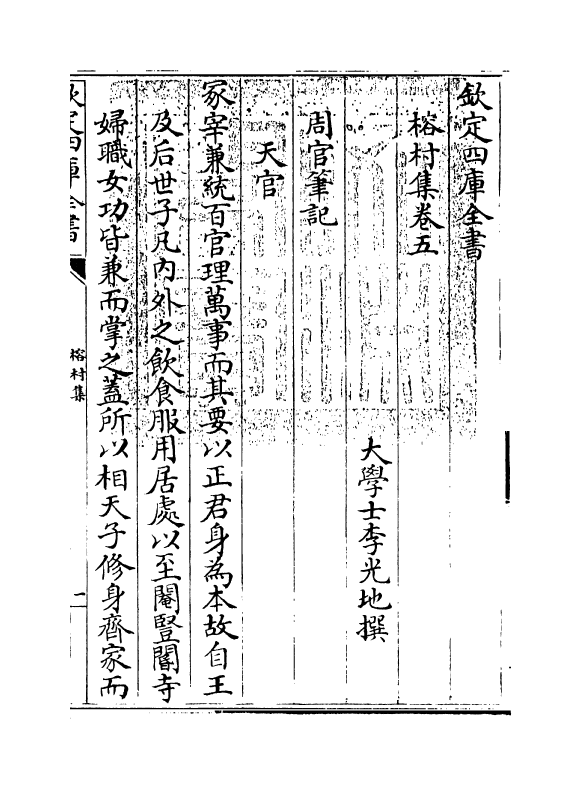 欽定四庫全書
榕村集卷五
大學士李光地撰
周官筆記
天官
冢宰兼統百官理萬事而其要以正君身為本故自王
及后世子凡内外之飲食服用居處以至閹豎閽寺
婦職女功皆兼而掌之葢所以相天子修身齊家而
欽定四庫全書
榕村集